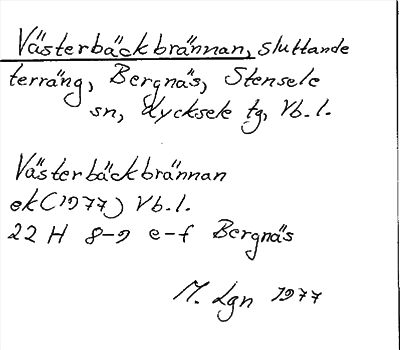 Västerbäckbrännan, sluttande
terräng, Bergnäs, Stensele
sn, Lycksele tg, Vb.l.
Västerbäckbrännan
ek (1977) Vb.l.
22 H 8-9 e-f Bergnäs
M. Lgn 1977